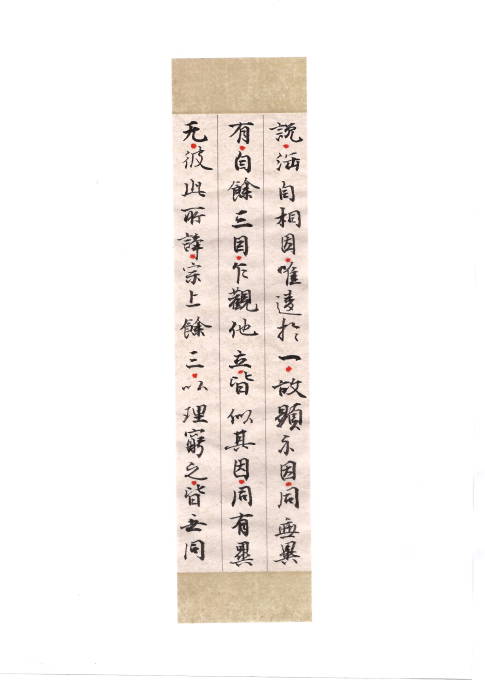 說自相因唯違於一故顯示因同無異
有自餘三因乍觀他立皆似其因同有異
无彼此所諍宗上餘三以理窮之皆无同